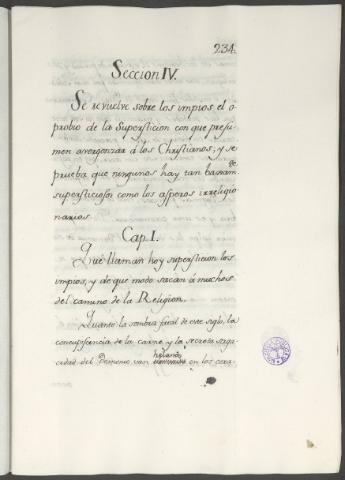 234.
Seccion IV.
Se revuelve sobre los impios el o-
probio de la Supersticion con que presu-
men avergonzar à los Christianos; y se
prueba que ningunos hay tan baxam.te
supersticiosos como los asperos irreligio-
narios.
Cap. I.
Què llaman hoy supersticion los
impios, y de què modo sacan à muchos
del camino de la Religion.
Quanto la sombra fatal de este siglo, la
concupiscencia de la carne, y la secreta saga-
cidad del Demonio van helando
en los cora-